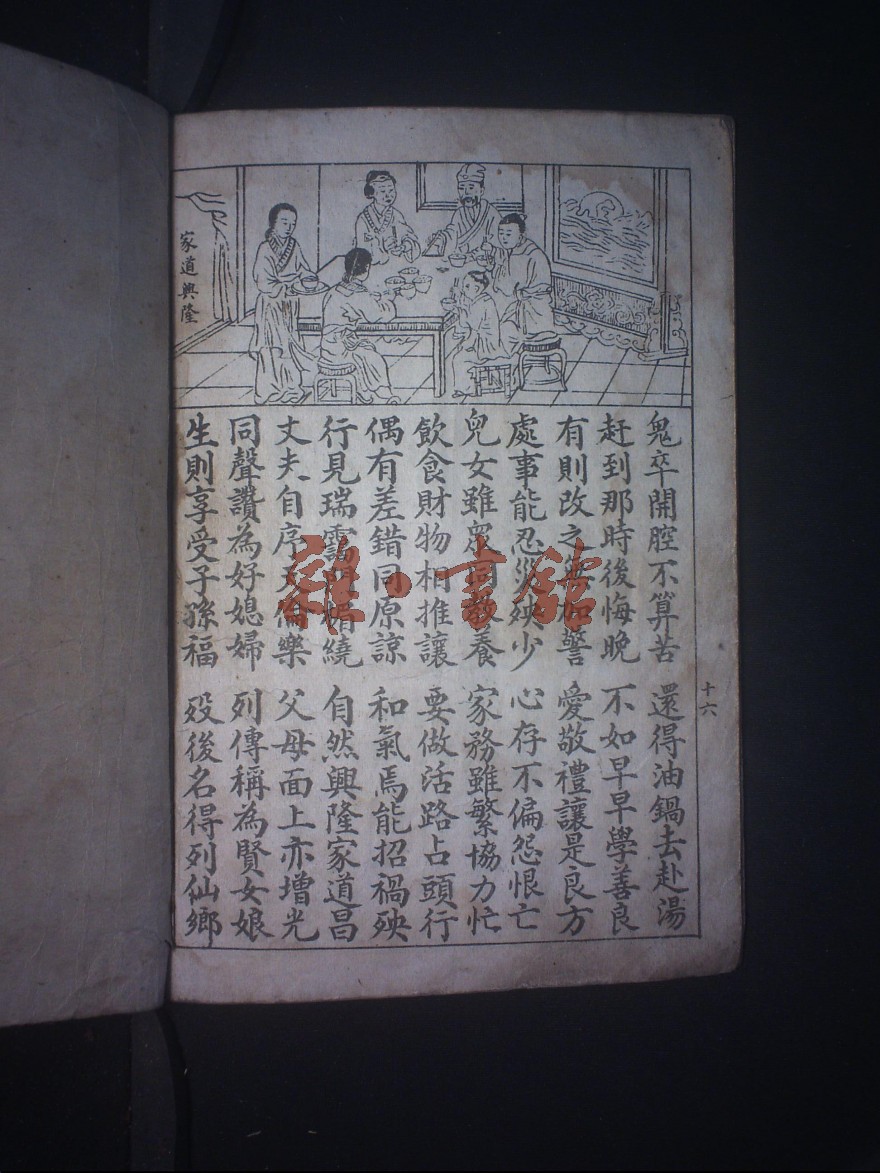 家道興隆
鬼卒開腔不算苦 還得油鍋去赴湯
赶到那時後悔晚 不如早早學善良
有則改之無加警 愛敬禮讓是良方
處事能忍災殃少 心存不偏怨恨亡
兒女雖眾同教養 家務雖繁協力忙
飲食財物相推讓 要做活路占頭行
偶有差錯同原諒 和氣焉能招禍殃
行見瑞靄門楣繞 自然興隆家道昌
丈夫自序天倫樂 父母面上亦增光
同聲讚為好媳婦 列傳稱為賢女娘
生則享受子孫福 殁後名得列仙鄉
十六
雜·書館